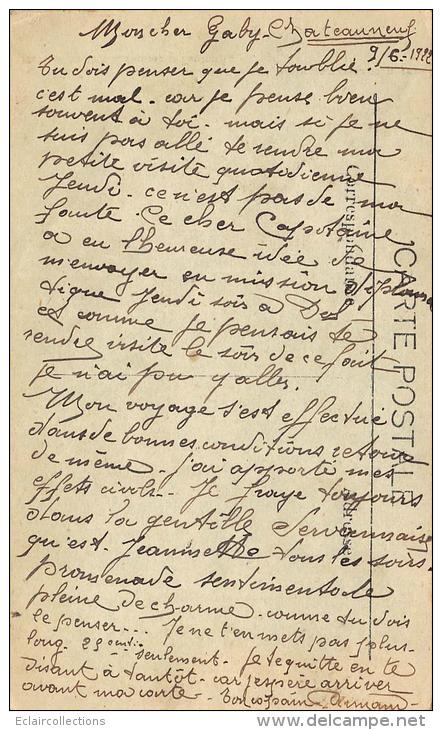 Mon cher Gaby - Chateauneuf
9/6-1922
Tu dois penser que je t'oublie.
c'est mal - car je pense bien
souvent à toi - mais si je ne
suis pas allé te rendre ma
petite visite quotidienne
Jeudi - ce n'est pas de ma
faute - Ce cher Capitaine
a eu l'heureuse idée de
m'envoyer en mission diploma
tique Jeudi soir à Dol
et comme je pensais te
rendre visite le soir de ce fait
je n'ai pu y aller.
Mon voyage s'est effectué
dans de bonnes conditions retour
de même - j'ai apporté mes
effets civils - Je fraye toujours
dans la gentille Servannaise
qu'est Jeannette tous les soirs
promenade sentimentale
pleine de charme - comme tu dois
le penser... Je ne t'en mets pas plus
long. 25 seulement - Je te quitte en te
disant à tantôt - car j'espère arriver
avant ma carte - Ton copain
CARTE POSTALE
Correspondance
Adresse
Eclaircollections